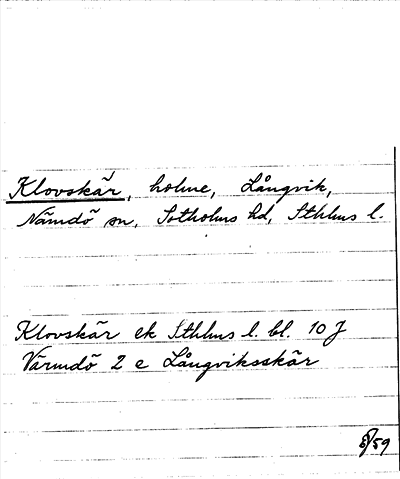 Klovskär, holme, Långvik,
Nämdö sn, Sotholms hd, Sthlms l.
Klovskär ek Sthlms l. bl. 10 J
Värmdö 2 e Långviksskär
/59